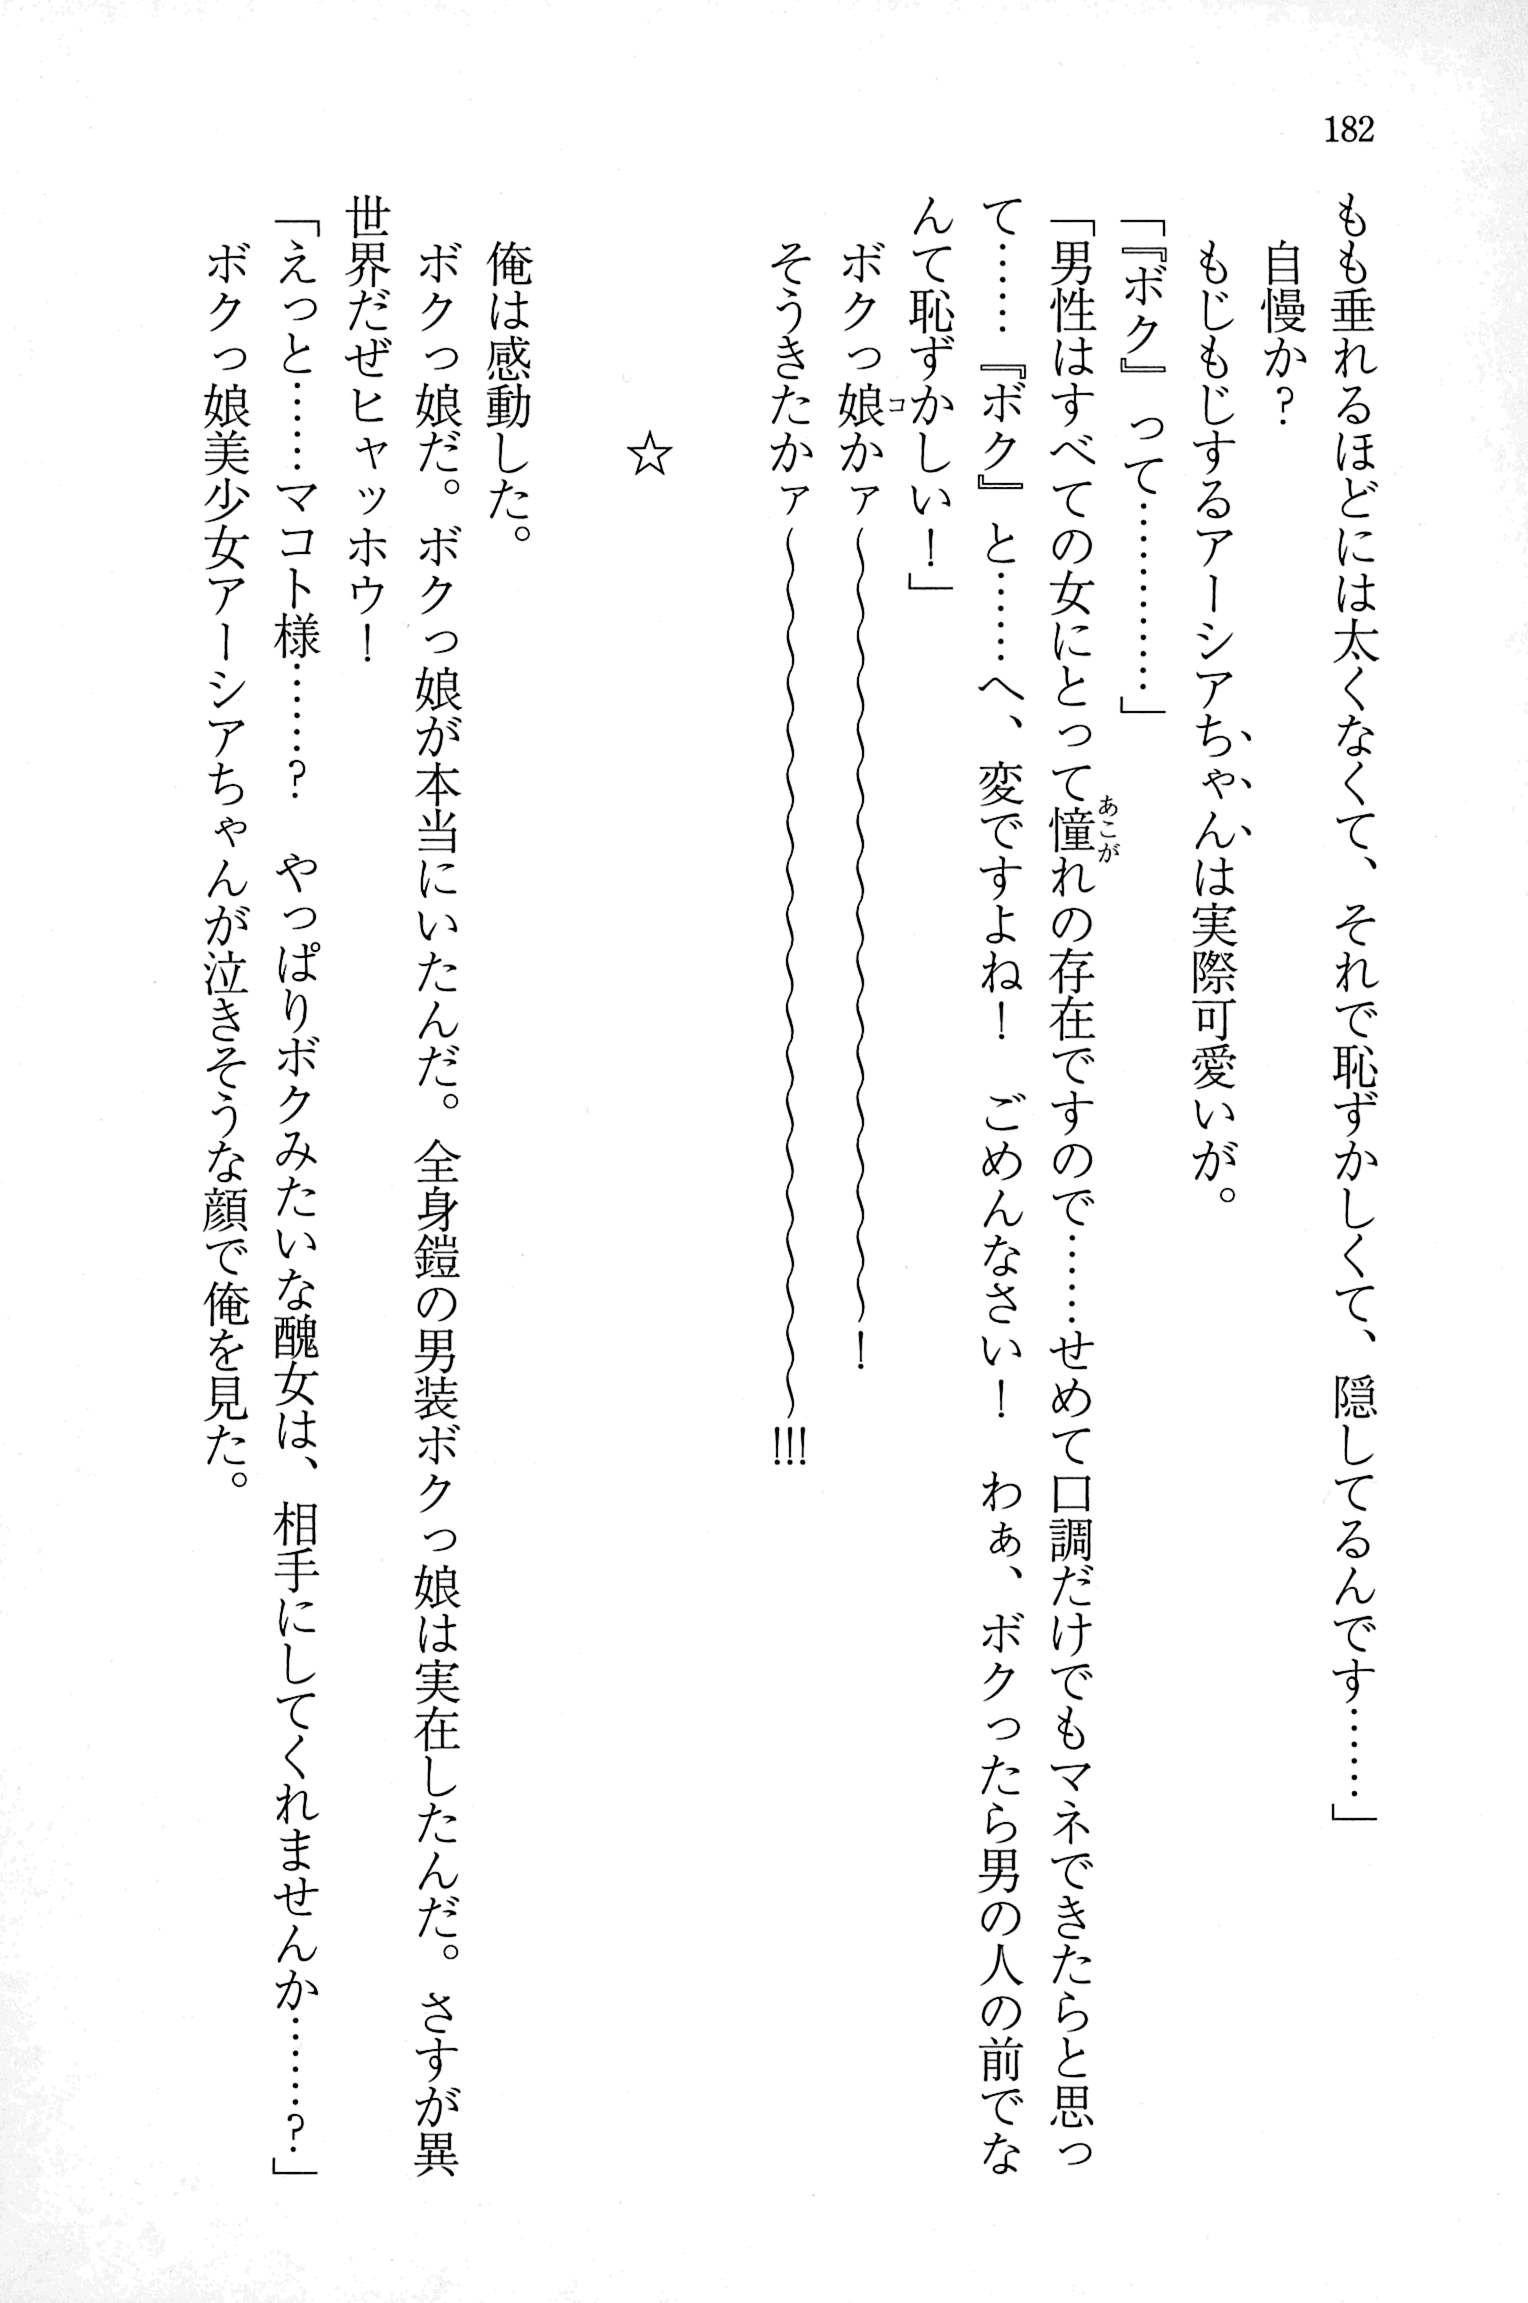 182
もも垂れるほどには太くなくて、それで恥ずかしくて、隠してるんです……」
自慢か？
もじもじするアーシアちゃんは実際可愛いが。
「『ボク』って…………」
「男性はすべての女にとって憧れの存在ですので……せめて口調だけでもマネできたらと思っ
て……『ボク』と……へ、変ですよね！　ごめんなさい！　わぁ、ボクったら男の人の前でな
んて恥ずかしい！」
ボクっ娘かァ〜〜〜〜〜〜〜〜〜〜〜〜〜〜〜〜〜！
そうきたかァ〜〜〜〜〜〜〜〜〜〜〜〜〜〜〜〜〜〜〜!!!
☆
俺は感動した。
ボクっ娘だ。ボクっ娘が本当にいたんだ。全身鎧の男装ボクっ娘は実在したんだ。さすが異
世界だぜヒャッホウ！
「えっと……マコト様……？　やっぱりボクみたいな醜女は、相手にしてくれませんか……？」
ボクっ娘美少女アーシアちゃんが泣きそうな顔で俺を見た。